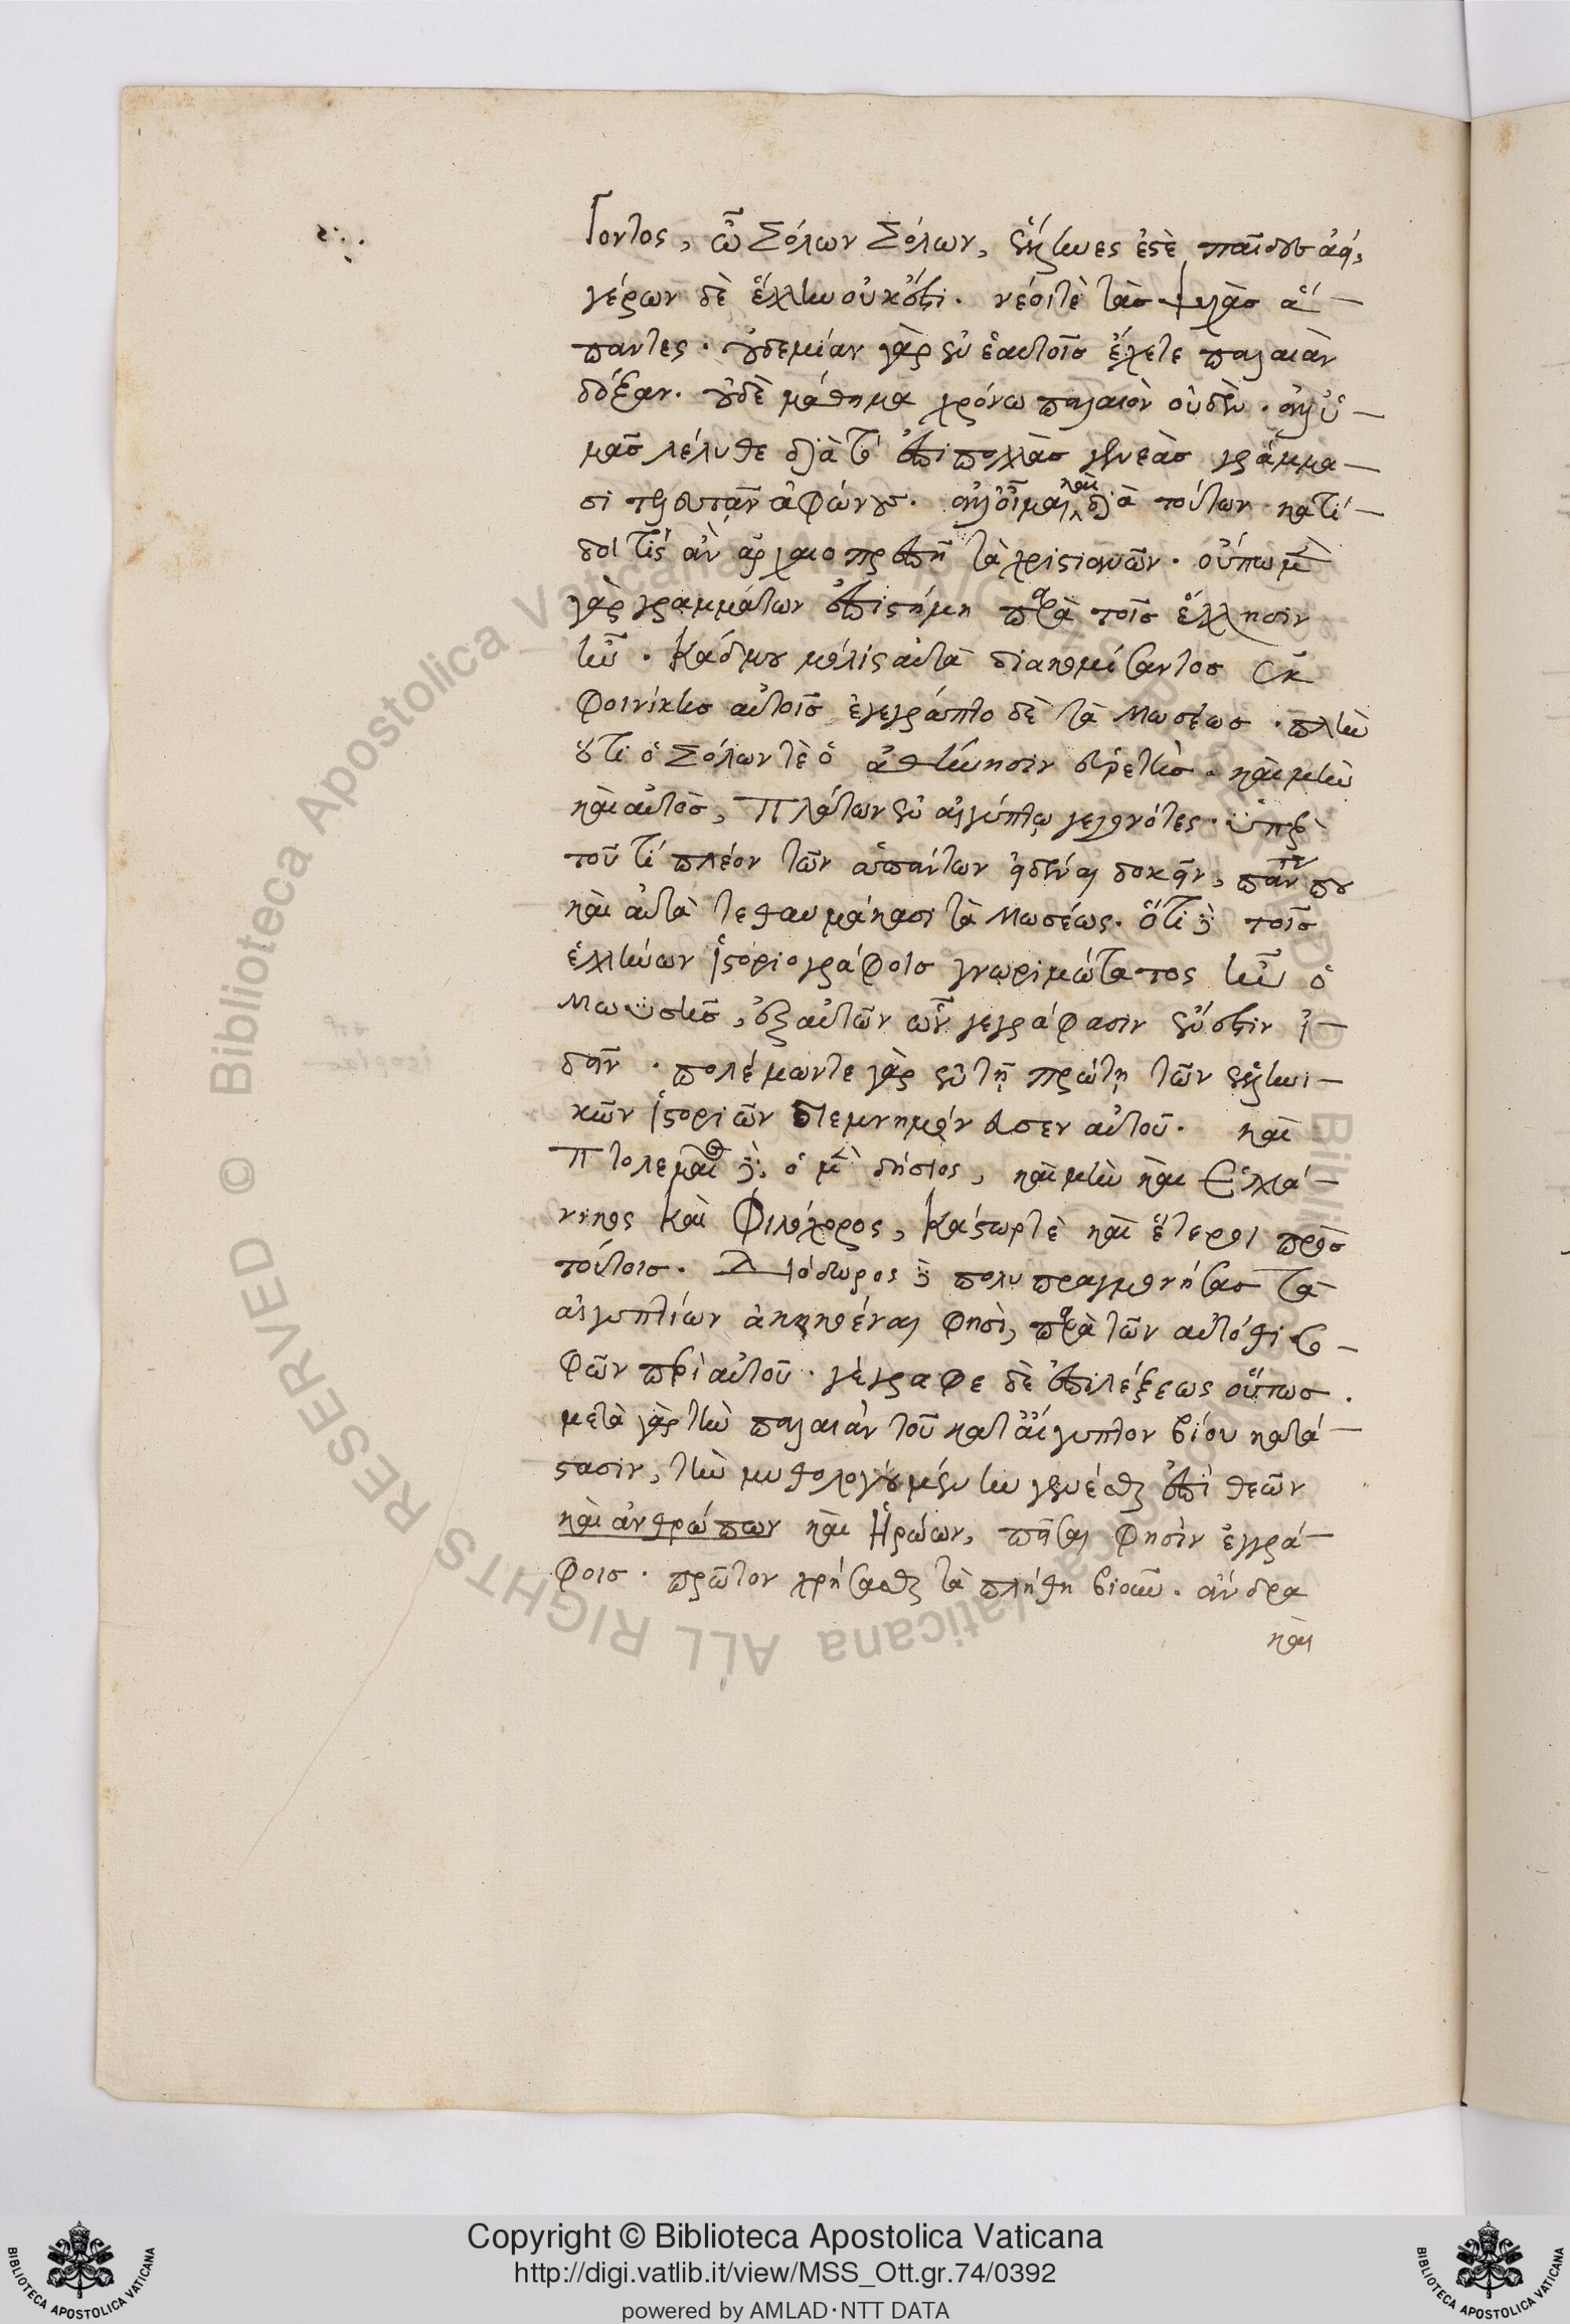 γοντος, ὦ Σόλων Σόλων, ἕλληνες ἐστὲ παῖδες ἀεί,
γέρων δὲ ἕλλην οὐκ ἔστι. νέοι τὲ τὰς ψυχὰς ἅ—
παντες. οὐδεμίαν γὰρ ἐν ἑαυτοῖς ἔχετε παλαιὰν
δόξαν. οὐδὲ μάθημα χρόνω παλαιὸν οὐδέν. ἀλλ' ὑ—
μᾶς λέληθε διὰ τὸ ἐπὶ πολλὰς γενεὰς γράμμα—
σι τελευτᾶν ἀφώνους. ἀλλ' οἶμαι καὶ διὰ τούτων κατί—
δοι τίς ἂν ἀρχαιοπρεπῆ τὰ χριστιανῶν. οὔπω μὲν
γὰρ γραμμάτων ἐπιστήμη παρὰ τοῖς ἕλλησιν
ἦν. Κάδμου μόλις αὐτὰ διακομίσαντος ἐκ
Φοινίκης αὐτοῖς ἐγέγραπτο δὲ τὰ Μωσέως. πλὴν
ὅτι ὁ Σόλων τὲ ὁ ἀθήνησιν εὑρετής. καὶ μὴν
καὶ αὐτὸς, Πλάτων ἐν αἰγύπτω γεγονότες. ὑπὲρ
τοῦ τί πλέον τῶν ἁπάντων εἰδέναι δοκεῖν, πάντη που
καὶ αὐτὰ τεθαυμάκασι τὰ Μωσέως. ὅτι δὲ τοῖς
ἑλλήνων ἱστοριογράφοις γνωριμώτατος ἦν ὁ
Μωϋσῆς, ἐξ αὐτῶν ὧν γεγράφασιν ἔνεστιν ἰ—
δεῖν. πολέμων τε γὰρ ἐν τῇ πρώτῃ τῶν ἑλληνι—
κῶν ἱστοριῶν διεμνημόνευσεν αὐτοῦ. καὶ
Πτολεμαῖος δὲ ὁ μενδήσιος, καὶ μὴν καὶ Ἑλλά—
νικος καὶ Φιλόχορος, Κάστωρ τὲ καὶ ἕτεροι πρὸς
τούτοις. Διόδωρος δὲ πολυπραγμονήσας τὰ
αἰγυπτίων ἀκηκοέναι φησὶ, παρὰ τῶν αὐτόθι σο—
φῶν περὶ αὐτοῦ. γέγραφε δὲ ἐπὶ λέξεως οὕτως.
μετὰ γὰρ τὴν παλαιὰν τοῦ κατ' αἴγυπτον βίου κατά—
στασιν, τὴν μυθολογουμένην γενέσθαι ἐπὶ θεῶν
καὶ ἀνθρώπων καὶ Ἡρώων, πεῖσαι φησὶν ἐγγρά—
φοις. πρῶτον χρήσασθαι τὰ πλήθη βιοῦν. ἄνδρα
καὶ
Copyright © Biblioteca Apostolica Vaticana
http://digi.vatlib.it/view/MSS_Ott.gr.74/0392
powered by AMLAD·NTT DATA